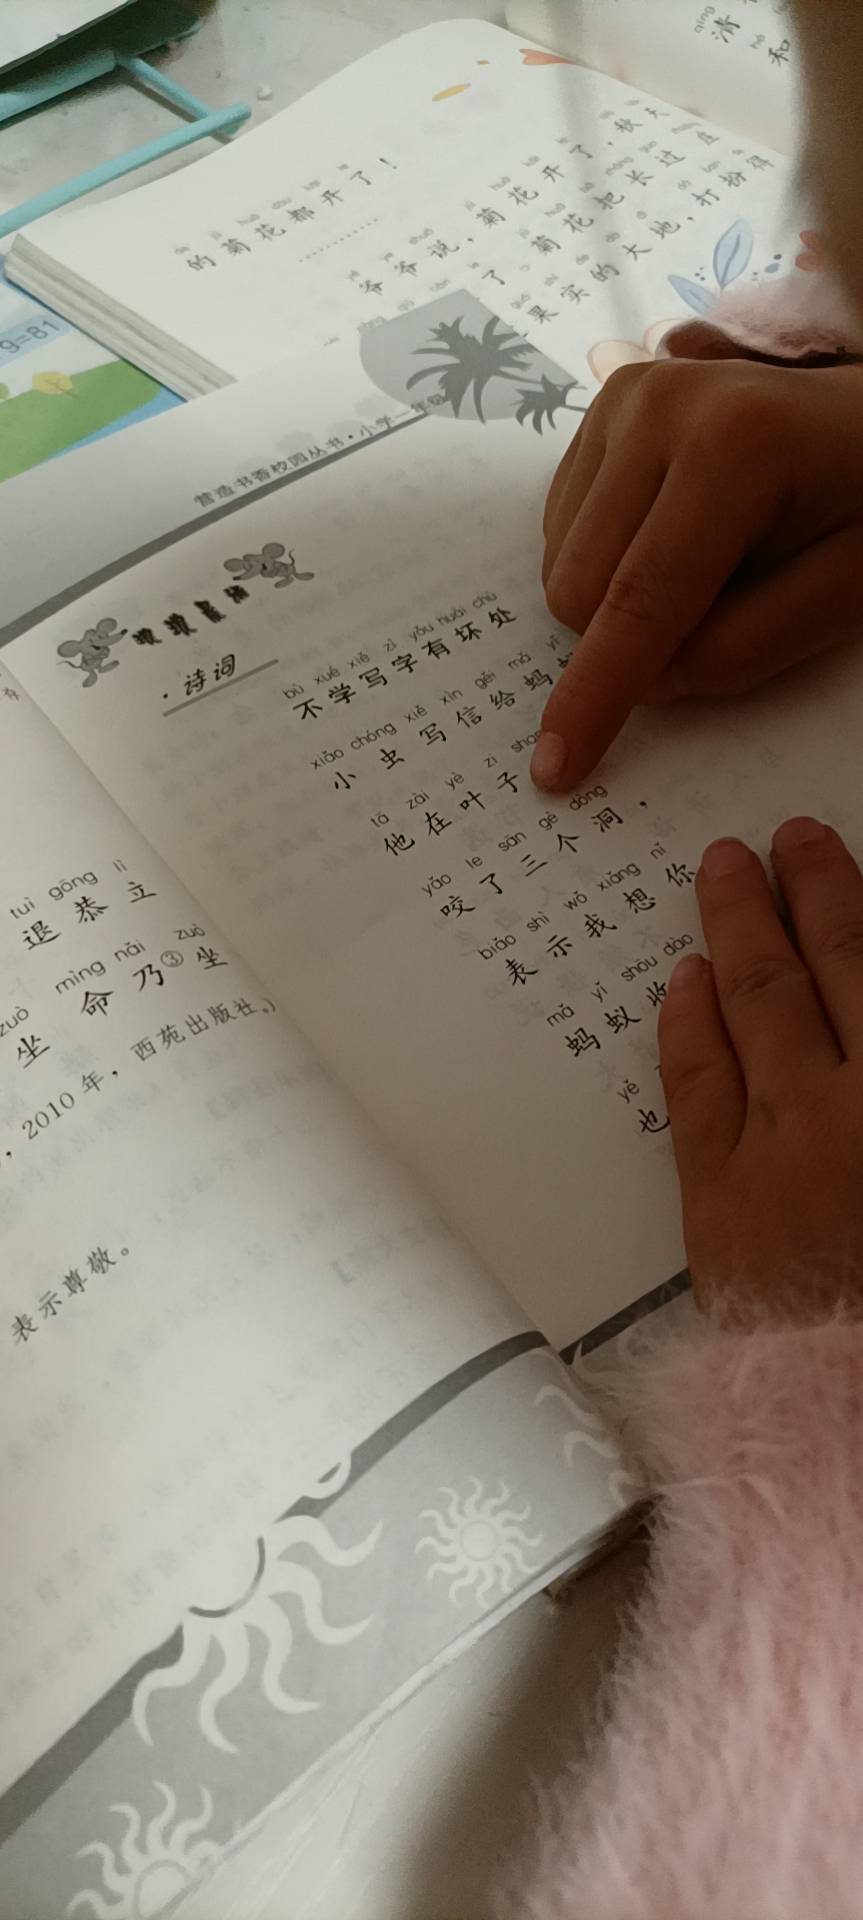 qīng
清
hé
和
的菊花都开了！
…………
爷爷说，菊花开了，秋天
了。菊花把长过
果实的大地，打扮得
9=81
营造书香校园丛书·小学一年级
·诗词
bù xué xiě zì yǒu huài chù
不学写字有坏处
xiǎo chóng xiě xìn gěi mǎ yǐ
小虫写信给蚂
tā zài yè zi
他在叶子
yǎo le sān gè dòng
咬了三个洞，
biǎo shì wǒ xiǎng nǐ
表示我想你
mǎ yǐ shōu dào
蚂蚁收
yě
也
tuì gōng lì
退恭立
zuò mìng nǎi zuò
坐命乃③坐
，2010年，西苑出版社。）
表示尊敬。